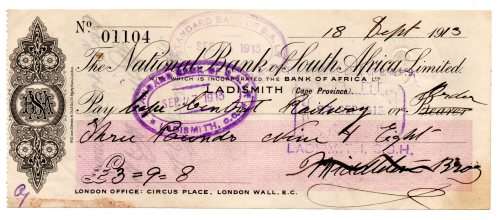 No. 01104
18 Sept 1913
The National Bank of South Africa Limited.
WHICH IS INCORPORATED THE BANK OF AFRICA LD
LADISMITH (Cape Province).
Pay Cape Central Railway or Bearer Order
Three Pounds Nine & Eight
£3=9=8
Middleton Bros
LONDON OFFICE: CIRCUS PLACE, LONDON WALL, E.C.
STANDARD BANK OF S.A.
1913
BANK
SEP 1913
LADISMITH, C.C.